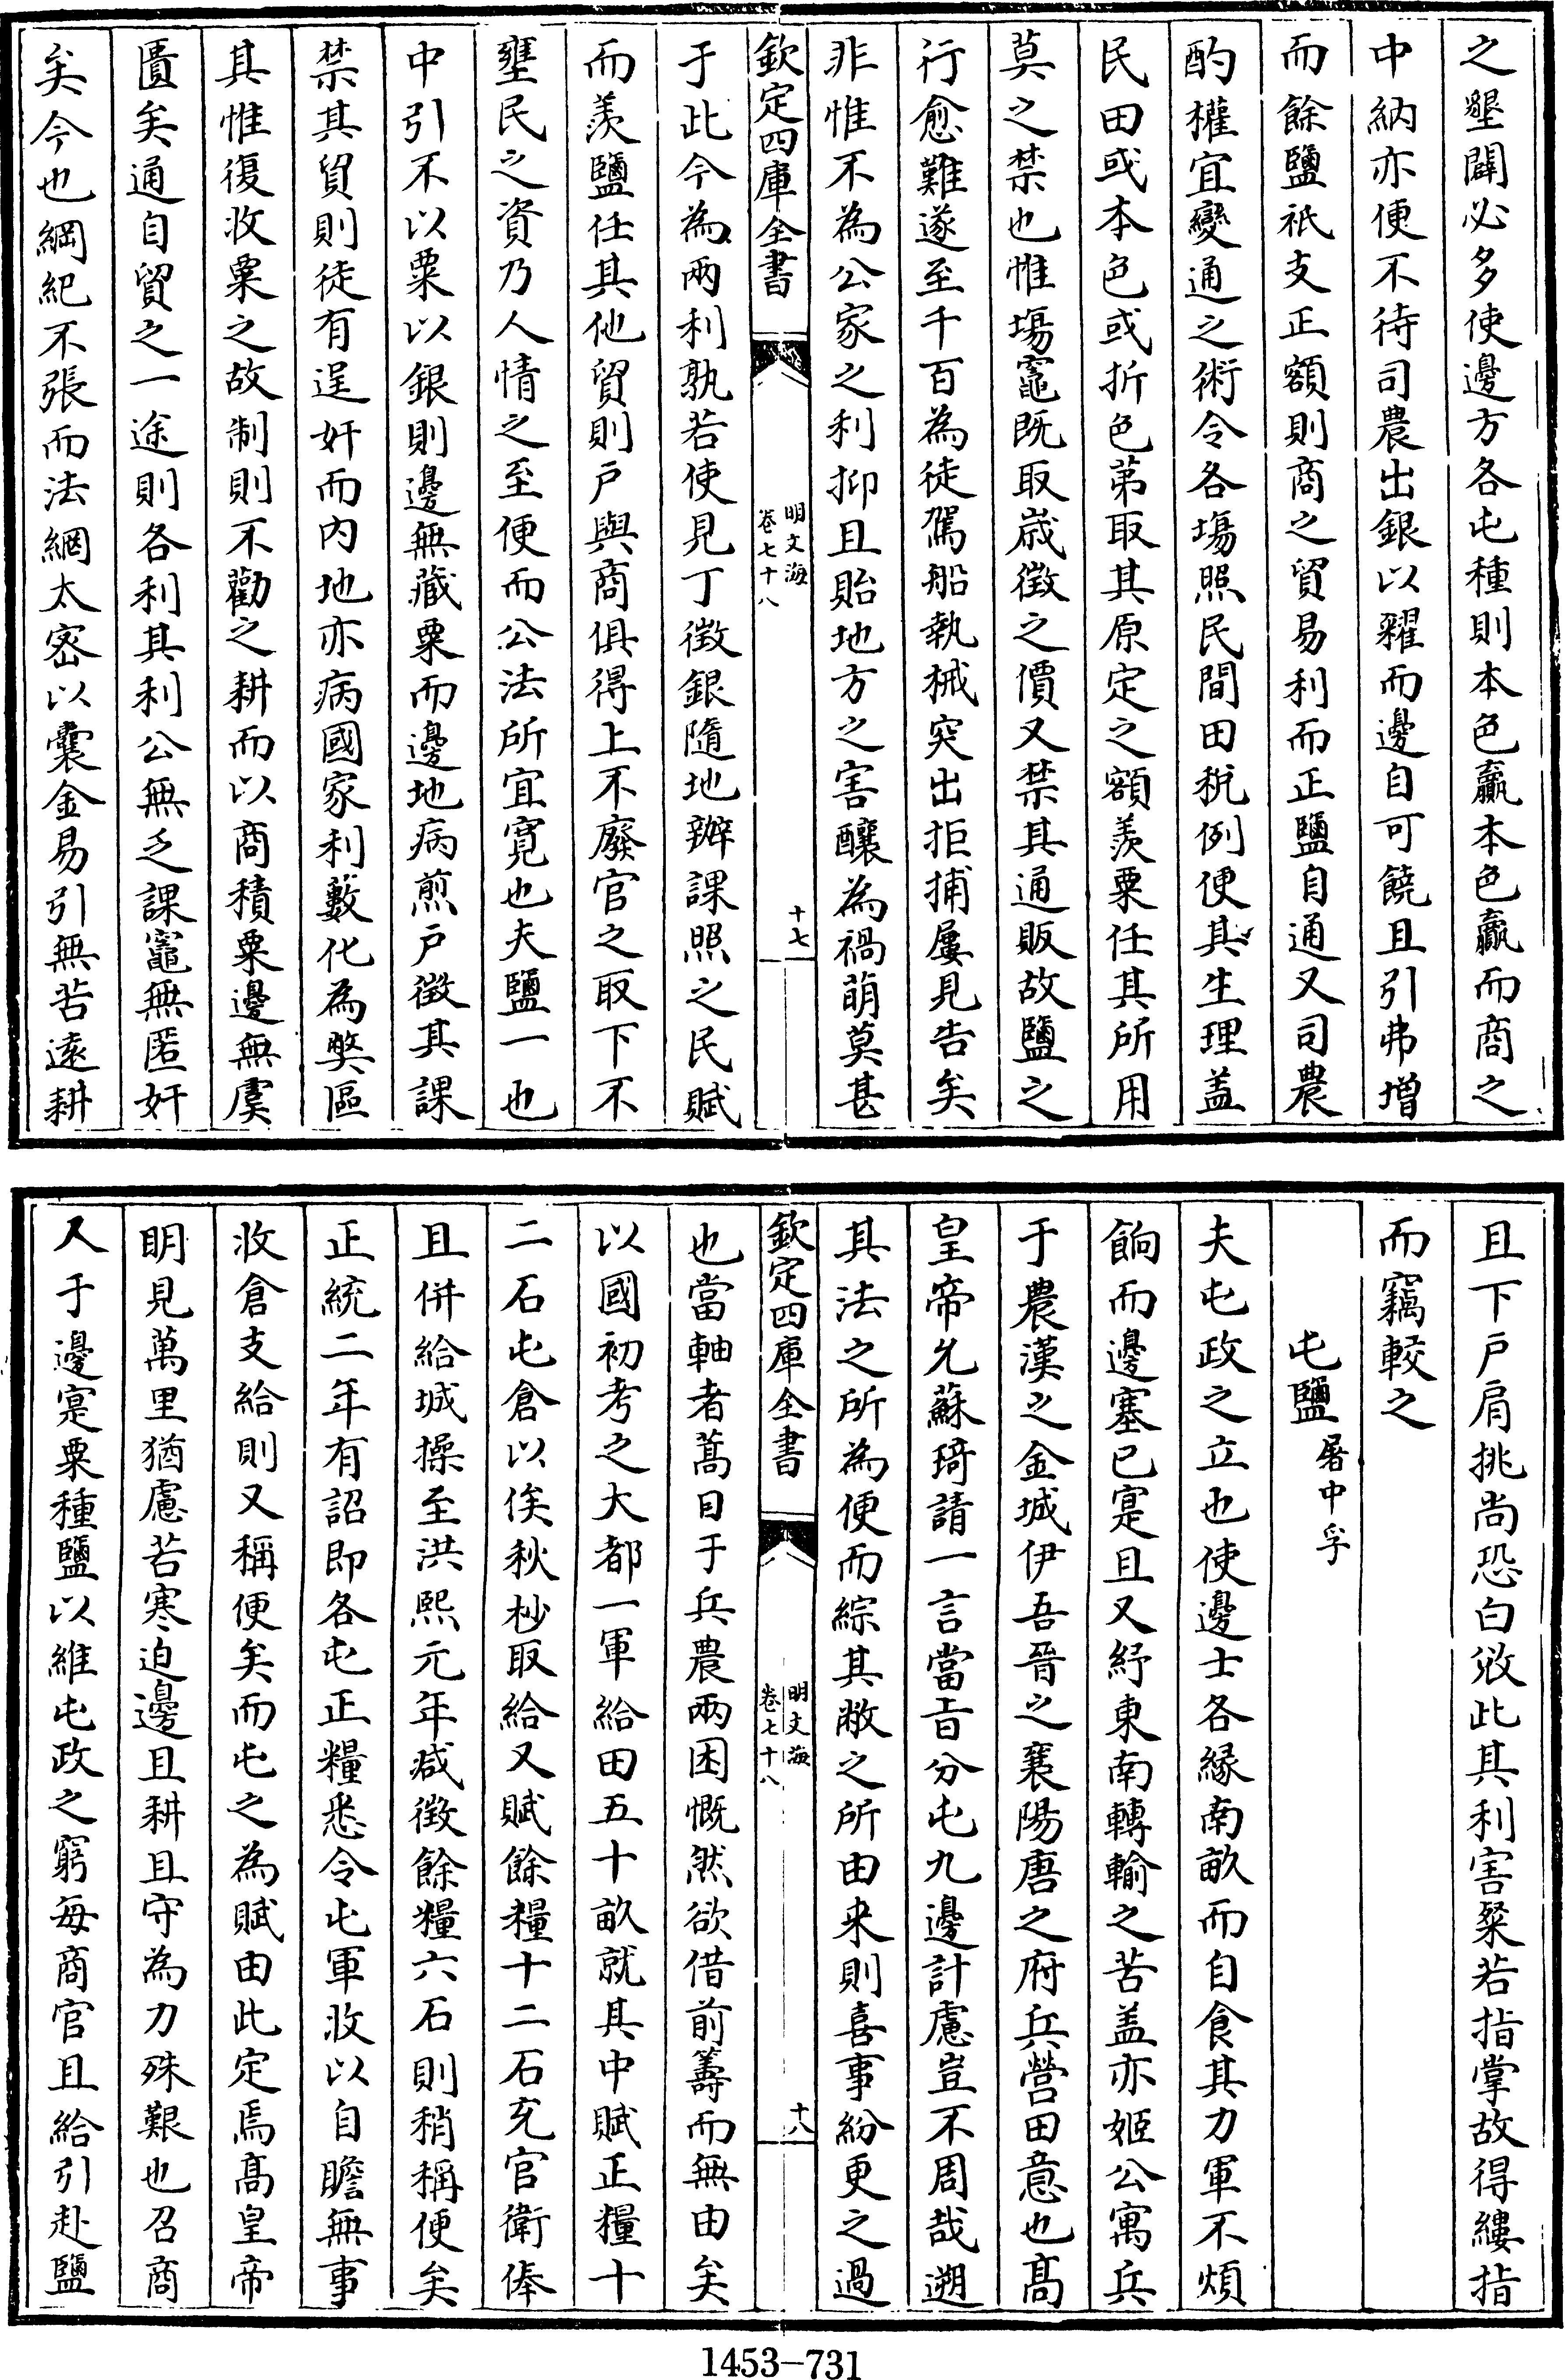 之墾闢必多使邊方各屯種則本色贏本色贏而商之
中納亦便不待司農出銀以糴而邊自可饒且引弗增
而餘鹽祇支正額則商之貿易利而正鹽自通又司農
酌權宜變通之術令各場照民間田稅例便其生理盖
民田或本色或折色第取其原定之額羨粟任其所用
莫之禁也惟塲竈既取歲徴之價又禁其通販故鹽之
行愈難遂至千百為徒駕船執械突出拒捕屢見告矣
非惟不為公家之利抑且貽地方之害釀為禍萌莫甚
欽定四庫全書
明文海
卷七十八
十七
于此今為兩利孰若使見丁徴銀隨地辦課照之民賦
而羨鹽任其他貿則戶與商俱得上不廢官之取下不
壅民之資乃人情之至便而公法所宜寛也夫鹽一也
中引不以粟以銀則邊無藏粟而邊地病煎戶徴其課
禁其貿則徒有逞奸而内地亦病國家利藪化為弊區
其惟復收粟之故制則不勸之耕而以商積粟邊無虞
匱矣通自貿之一途則各利其利公無乏課竈無匿奸
矣今也綱紀不張而法網太密以囊金易引無苦遠耕
且下戶肩挑尚恐白㳺此其利害粲若指掌故得縷指
而竊較之
屯鹽屠中孚
夫屯政之立也使邊士各緣南畝而自食其力軍不煩
餉而邊塞已寔且又紓東南轉輸之苦盖亦姬公寓兵
于農漢之金城伊吾晉之襄陽唐之府兵營田意也髙
皇帝允蘇琦請一言當㫖分屯九邊計慮豈不周哉遡
其法之所為便而綜其敝之所由来則喜事紛更之過
欽定四庫全書
明文海
卷七十八
十八
也當軸者蒿目于兵農兩困慨然欲借前籌而無由矣
以國初考之大都一軍給田五十畝就其中賦正糧十
二石屯倉以俟秋杪取給又賦餘糧十二石充官衛俸
且併給城操至洪熙元年减徴餘糧六石則稍稱便矣
正統二年有詔即各屯正糧悉令屯軍收以自瞻無事
收倉支給則又稱便矣而屯之為賦由此定焉髙皇帝
明見萬里猶慮苦寒迫邊且耕且守為力殊艱也召商
人于邊寔粟種鹽以維屯政之窮每商官且給引赴鹽
1453-731